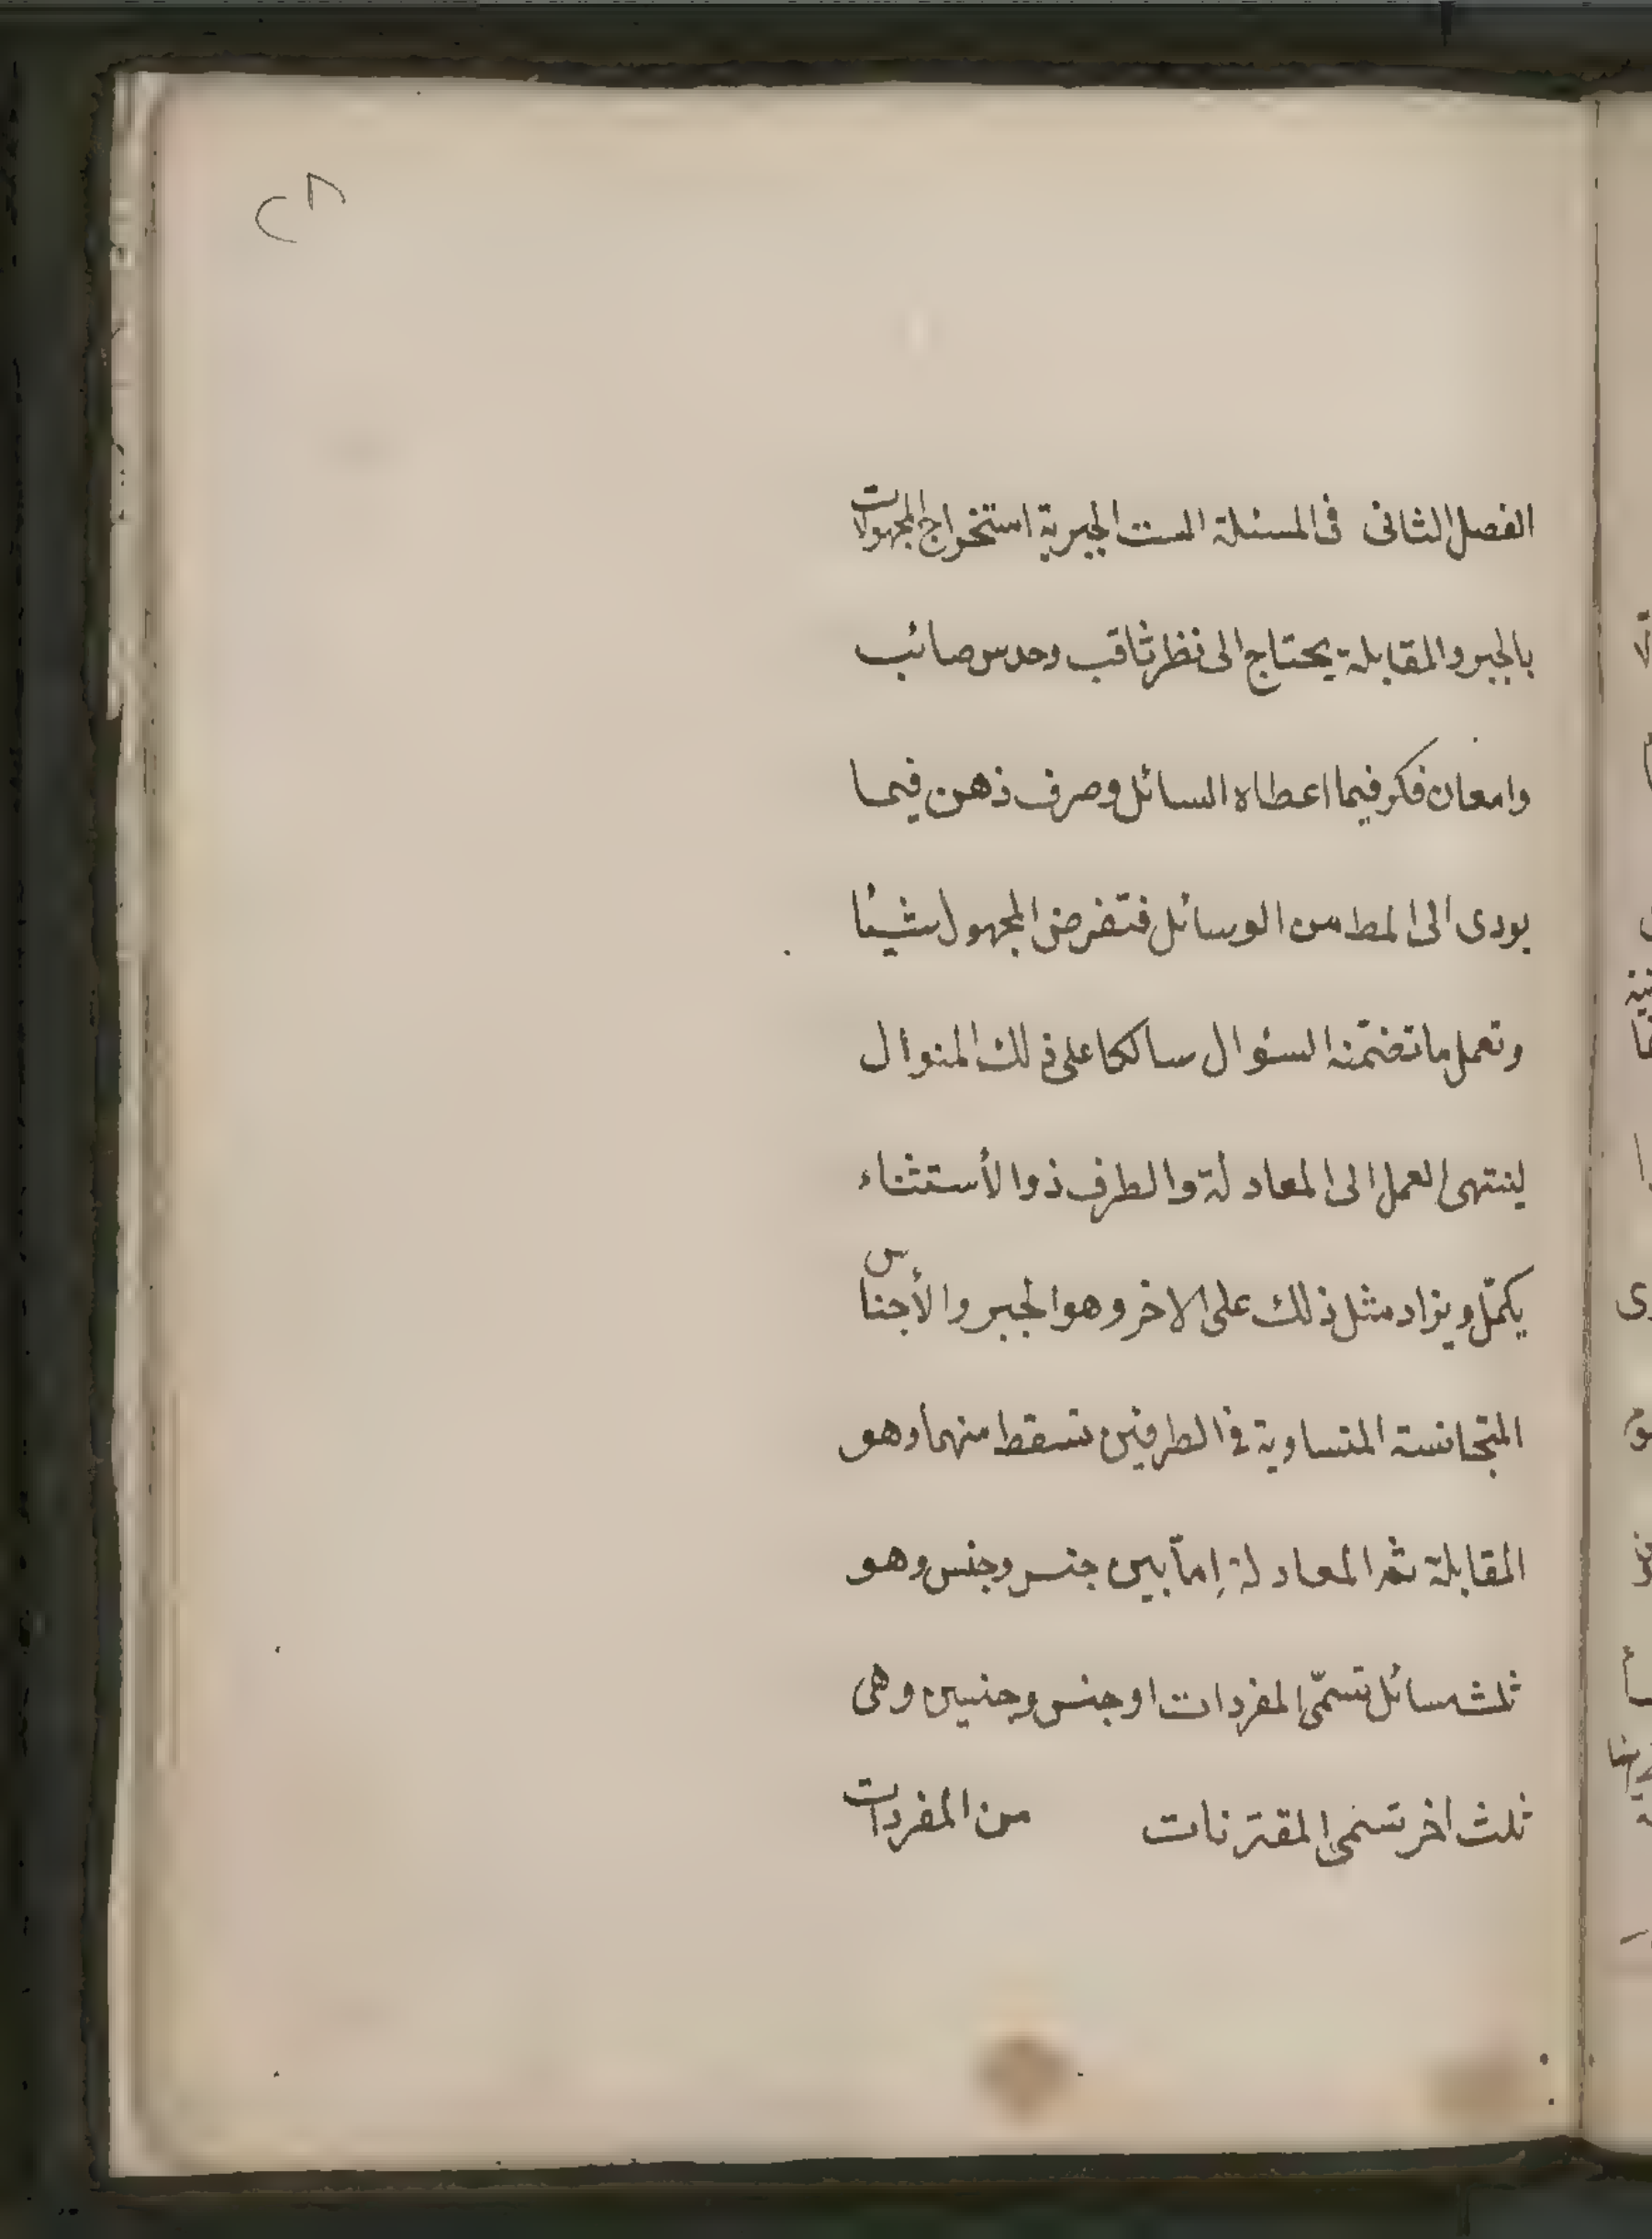 ٢٨
الفصل الثانى فى المسئلة الست الجبرية استخراج المجهولات
بالجبر والمقابلة يحتاج الى نظر ثاقب وحدس صائب
وامعان فكر فيما اعطاه السائل وصرف ذهن فيما
يودى الى المط من الوسائل فتفرض المجهول شيئا
وتعمل ما تضمّنه السؤال سالكا على ذلك المنوال
لينتهى العمل الى المعادلة والطرف ذو الأستثناء
يكمّل ويزاد مثل ذلك على الاخر وهو الجبر والأجناس
المتجانسة المتساوية فى الطرفين تسقط منهما وهو
المقابلة ثم المعادلة إمّا بين جنس وجنس وهو
ثلث مسائل تسمّى المفردات او جنس وجنسين وهى
ثلث اخر تسمى المقترنات من المفردات